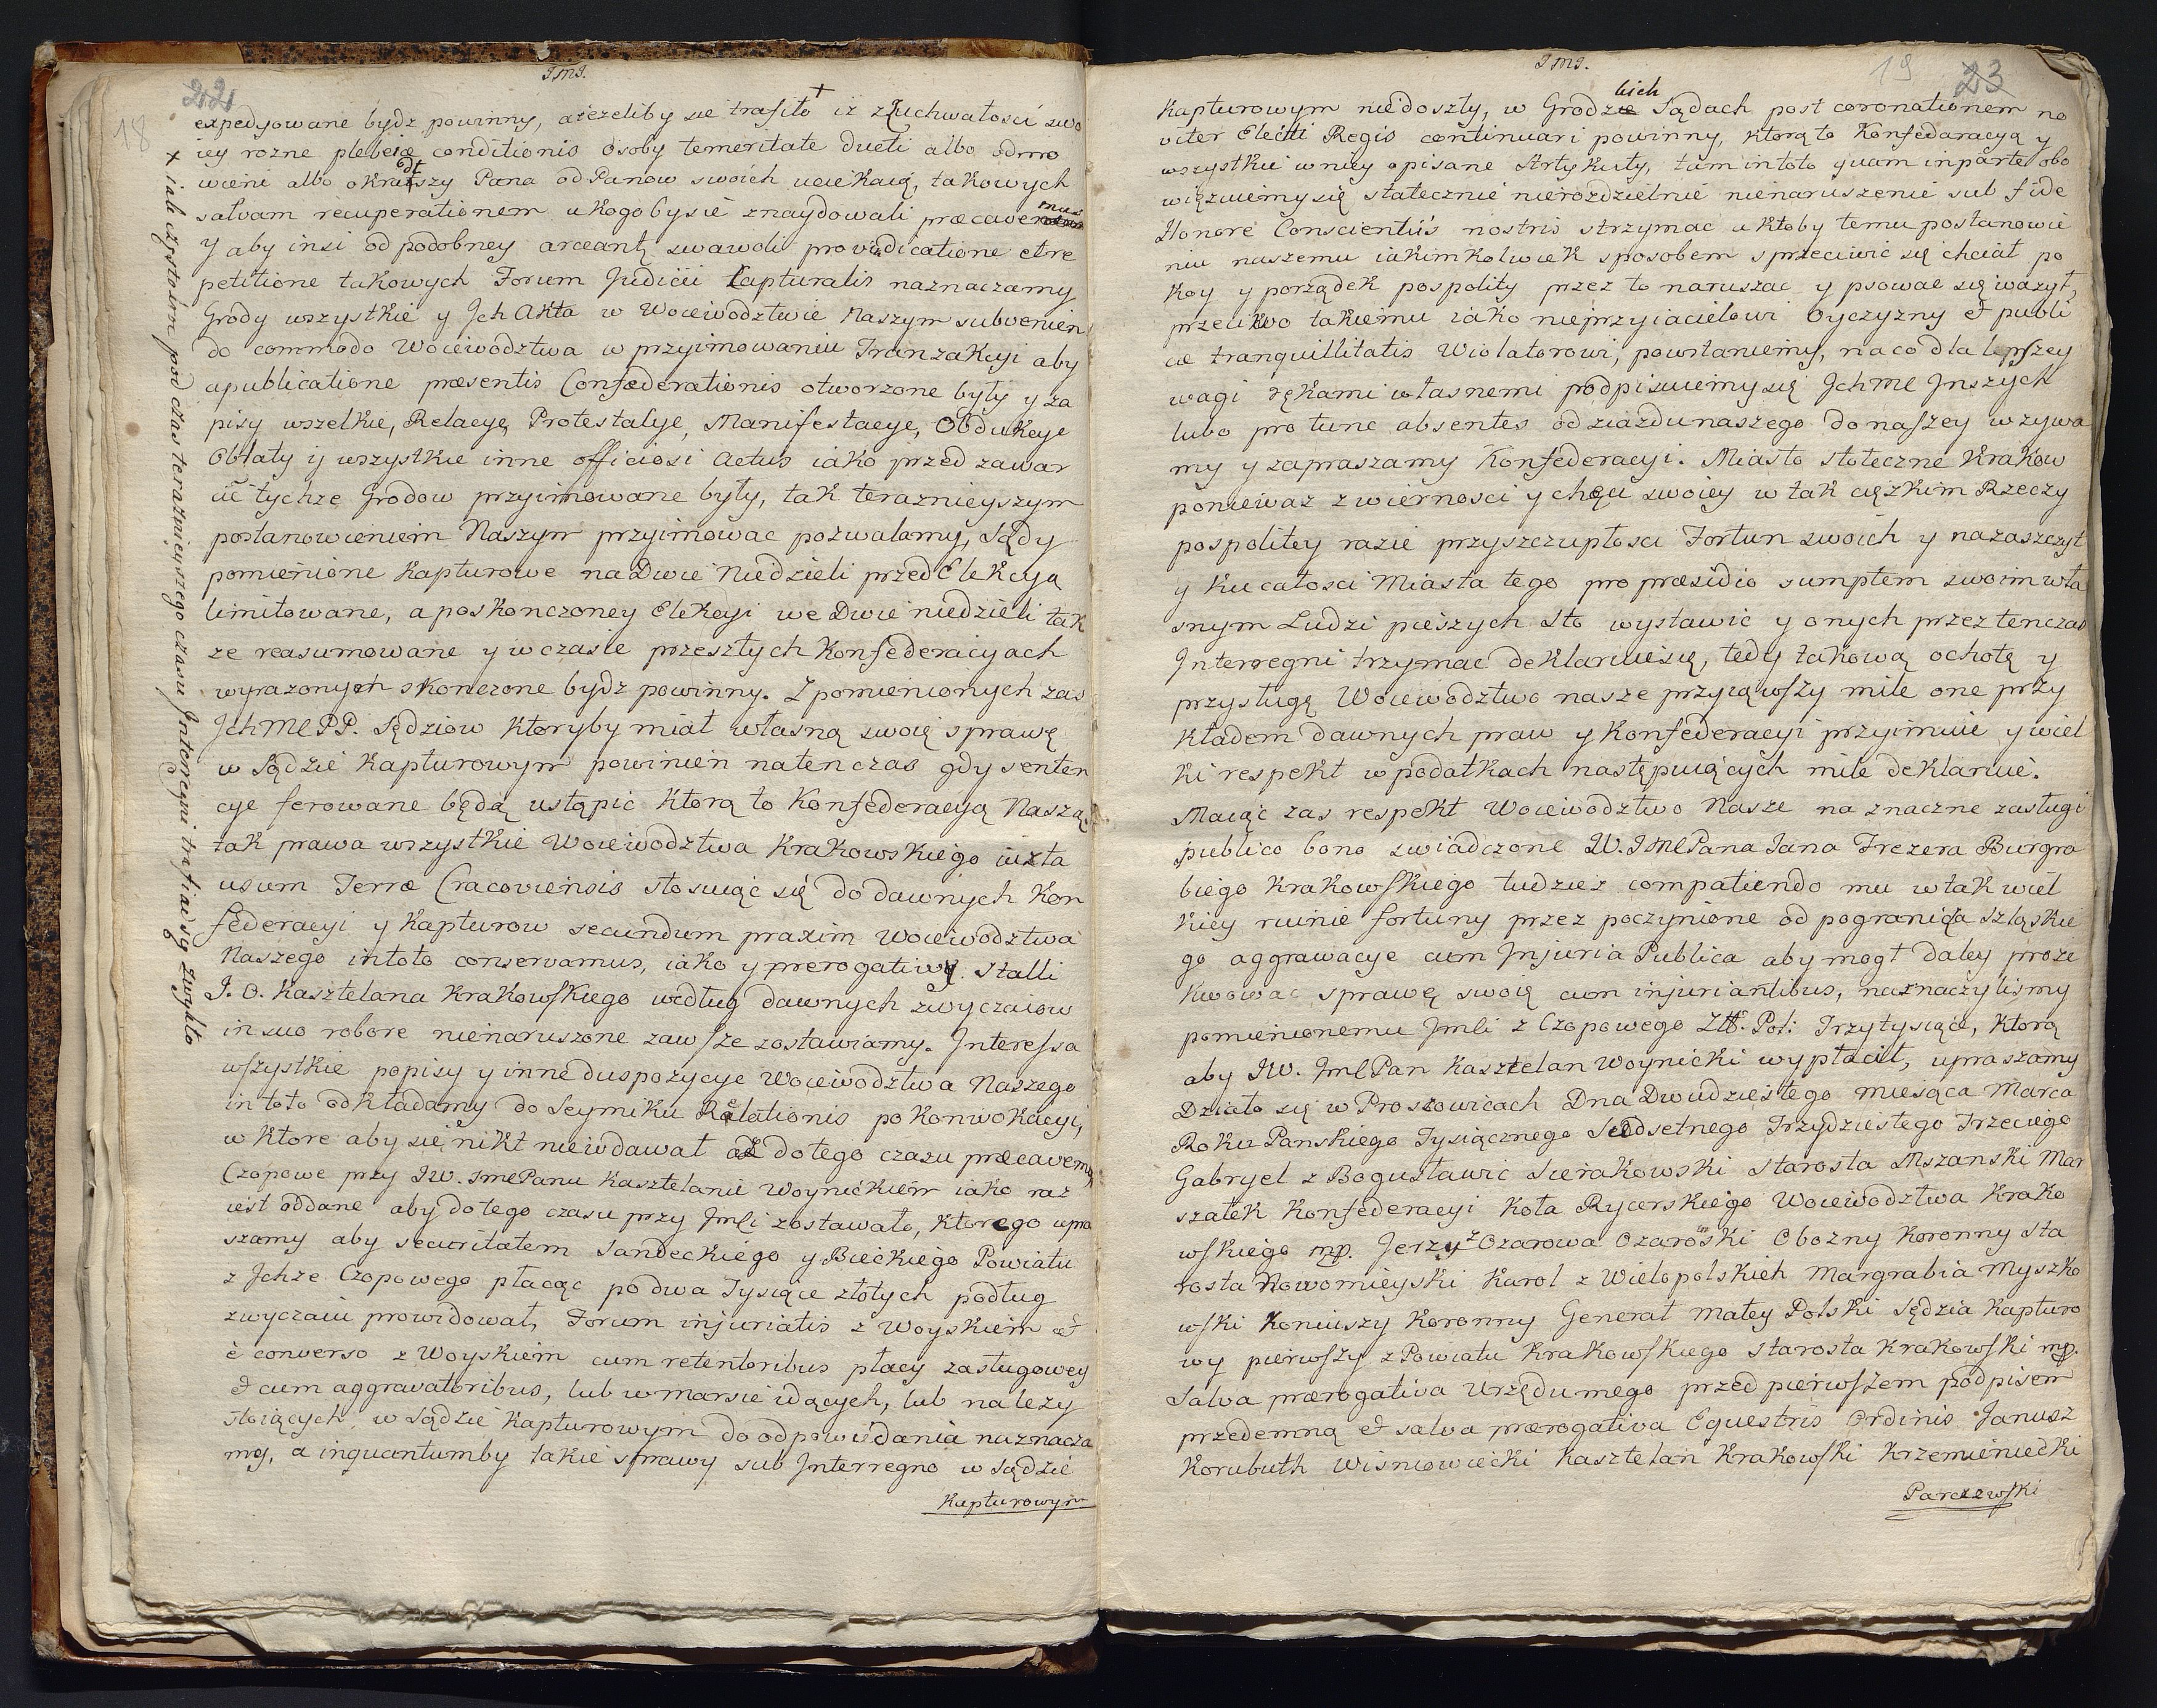 JMJ.
22
18
expedyowane bydz powinny, aiezeliby sie trafiło + iz z Zuchwałosci swo
iey rozne plebeiæ conditionis osoby temeritate ducti albo odmo
wieni albo okradszy Pana od Panow swoich uciekaią, takowych
salvam recuperationem u kogobysie znaydowali præcavemus
y aby insi od podobney arceantq swawoli pro vindicatione et re
petitione takowych Forum Judicii Capturalis naznaczamy
Grody wszystkie y Jch Akta w Woiewodztwie Naszym subvenien
do commodo Woiewodztwa w przyimowaniu Tranzakcyi aby
apublicatione præsentis Confœderationis otworzone były y za
pisy wszelkie, Relacye, Protestacye, Manifestacye, Obdukcye
Oblaty y wszystkie inne officiosi actus iako przed zawar
ciē tychze Grodow przyimowane były, tak teraznieyszym
postanowieniem Naszym przyimowac pozwalamy, Sądy
pomienione Kapturowe na Dwie Niedzieli przed Elekcyą
limitowane, a poskonczoney Elekcyi we Dwie niedzieli tak
ze reasumowane y w czasie przeszłych Konfederacyach
wyrazonych skonczone bydz powinny. Z pomienionych zas
JchMC PP. Sędziow ktoryby miał własną swoię sprawę
w Sądzie Kapturowym powinien natenczas gdy senten
cye ferowane będą ustąpic Ktorą to Konfederacyą Naszą,
tak prawa wszystkie Woiewodztwa Krakowskiego iuxta
usum Terræ Cracoviensis stosuiąc się do dawnych Kon
federacyi y Kapturow secundum praxim Woiewodztwa
Naszego intoto conservamus, iako y prerogativy. Stalli
J. O. Kasztelana Krakowskiego według dawnych zwyczaiow
in suo robore nienaruszone zawsze zostawiamy. Interessa
wszystkie popisy y inne duspozycye Woiewodztwa Naszego
in toto odkładamy do Seymiku Relationis po Konwokacyi,
w ktore aby się nikt niewdawał aż dotego czasu præcavemq
Czopowe przy JW. JmcPanu Kasztelanie Woynickiem iako raz
iest oddane aby do tego czasu przy Jmci zostawało, Ktorego upra
szamy aby securitatem Sandeckiego y Bieckiego Powiatu
z Jchze Czopowego płacąc po dwa Tysiące złotych podług
zwyczaiu prowidował, Forum injuriatis z Woyskiem et
è converso z Woyskiem cum retentoribus płacy zasługowey
et cum aggravatoribus, lub w marsie idących, lub na leży
stoiących w Sądzie Kapturowym do odpowiedania naznacza
my, a inquantumby takie sprawy sub Interregno w Sądzie
Kapturowym
x iak częstokroć pod czas teraznieyszego czasu Interregni trafiać się zwykło
JMJ.
19 23
Kapturowym niedoszły, w Grodzkich Sądach post coronationem no
viter Electi Regis continuari powinny, ktorą to Konfedaracyą y
wszystkie w niey opisane Artykuły, tam in toto quam in parte obo
więzuiemy się statecznie nierozdzielnie nienaruszenie sub fide
Honore Conscientiis nostris strzymac a ktoby temu postanowie
niu naszemu iakimkolwiek sposobem sprzeciwic się chciał po
koy y porządek pospolity przez to naruszac y psowac się wazył,
przeciwo takiemu iako nieprzyiacielowi Oyczyzny et publi
cæ tranquillitatis Wiolatorowi, powstaniemy, na co dla lepszey
wagi rękami własnemi podpisuiemy się JchMC Jnszych
lubo pro tunc absentes od ziazdu naszego do naszey wzywa
my y zapraszamy Konfederacyi. Miasto stołeczne Krakow
poniewaz z wiernosci y chęci swoiey w tak ciężkim Rzeczy
pospolitey razie przyszczupłosci Fortun swoich y nazaszczyt
y Ku całosci Miasta tego pro præsidio sumptem swoim wła
snym Ludzi pieszych Sto wystawic y onych przez ten czas
Interregni trzymac deklaruie się, tedy takową ochotę y
przysługę Woiewodztwo nasze przyiąwszy mile one przy
kładem dawnych praw y Konfederacyi przyimuie y wiel
ki respekt w podatkach następuiących mile deklaruie.
Maiąc zas respekt Woiewodztwo Nasze na znaczne zasługi
publico bono swiadczone W. JMCPana Jana Frezera Burgra
biego Krakowskiego tudziez compatiendo mu w tak wiel
kiey ruinie fortuny przez poczynione od pogranicza Szląskie
go aggrawacye cum Injuria Publica aby mogł daley proze
kwowac sprawę swoię cum injuriantibus, naznaczylismy
pomienionemu Jmci z Czopowego Złł. Pol: Trzytysiące, Ktorą
aby JW. JmcPan Kasztelan Woynicki wypłacił, upraszamy
Działo się w Proszowicach Dnia Dwudziestego miesiąca Marca
Roku Panskiego Tysiącznego Siedsetnego Trzydziestego Trzeciego
Gabryel z Bogusławic Sierakowski Starosta Mszanski Mar
szałek Konfederacyi Koła Rycerskiego Woiewodztwa Krako
wskiego mp. Jerzy z Ozarowa Ozarowski Obozny Koronny Sta
rosta Nowomieyski Karol z Wielopolskich Margrabia Myszko
wski Koniuszy Koronny Generał Małey Polski Sędzia Kapturo
wy pierwszy z Powiatu Krakowskiego Starosta Krakowski mp.
Salva prærogativa Urzędu mego przed pierwszem podpisem
przedemną et salva prærogativa Equestris Ordinis Janusz
Korubuth Wisniowiecki Kasztelan Krakowski Krzemieniecki
Parczewski